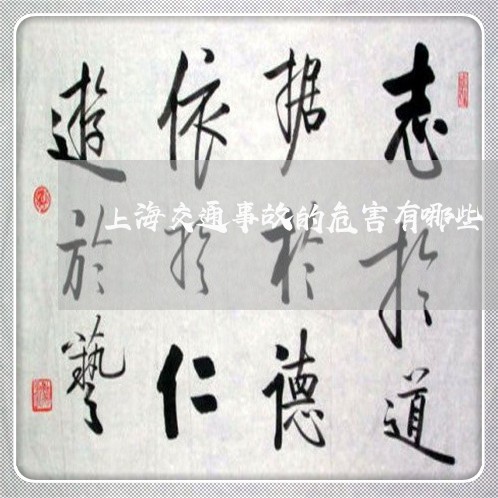 志於道
据於德
依於仁
遊於藝
上海交通事故的危害有哪些